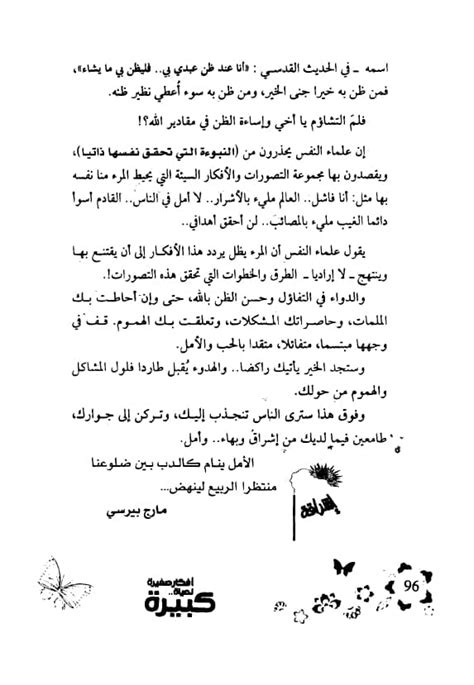 اسمه ـ في الحديث القدسي : «أنا عند ظن عبدي بي.. فليظن بي ما يشاء»،
فمن ظن به خيرا جنى الخير، ومن ظن به سوء أُعطي نظير ظنه.
فلمَ التشاؤم يا أخي وإساءة الظن في مقادير الله؟!
إن علماء النفس يحذرون من (النبوءة التي تحقق نفسها ذاتيا)،
ويقصدون بها مجموعة التصورات والأفكار السيئة التي يحيط المرء منا نفسه
بها مثل: أنا فاشل.. العالم مليء بالأشرار.. لا أمل في الناس.. القادم أسوأ
دائما الغيب مليء بالمصائب.. لن أحقق أهدافي..
يقول علماء النفس أن المرء يظل يردد هذا الأفكار إلى أن يقتنع بها
وينتهج ـ لا إراديا ـ الطرق والخطوات التي تحقق هذه التصورات!.
والدواء في التفاؤل وحسن الظن بالله، حتى وإن أحاطت بك
الملمات، وحاصراتك المشكلات، وتعلقت بك الهموم. قف في
وجهها مبتسما، متفائلا، متقدا بالحب والأمل.
وستجد الخير يأتيك راكضا.. والهدوء يُقبل طاردا فلول المشاكل
والهموم من حولك.
وفوق هذا سترى الناس تنجذب إليك، وتركن إلى جوارك،
طامعين فيما لديك من إشراق وبهاء.. وأمل.
إشراقة
الأمل ينام كالدب بين ضلوعنا
منتظرا الربيع لينهض...
مارج بيرسي
96
أفكار صغيرة
لحياة..
كبيرة